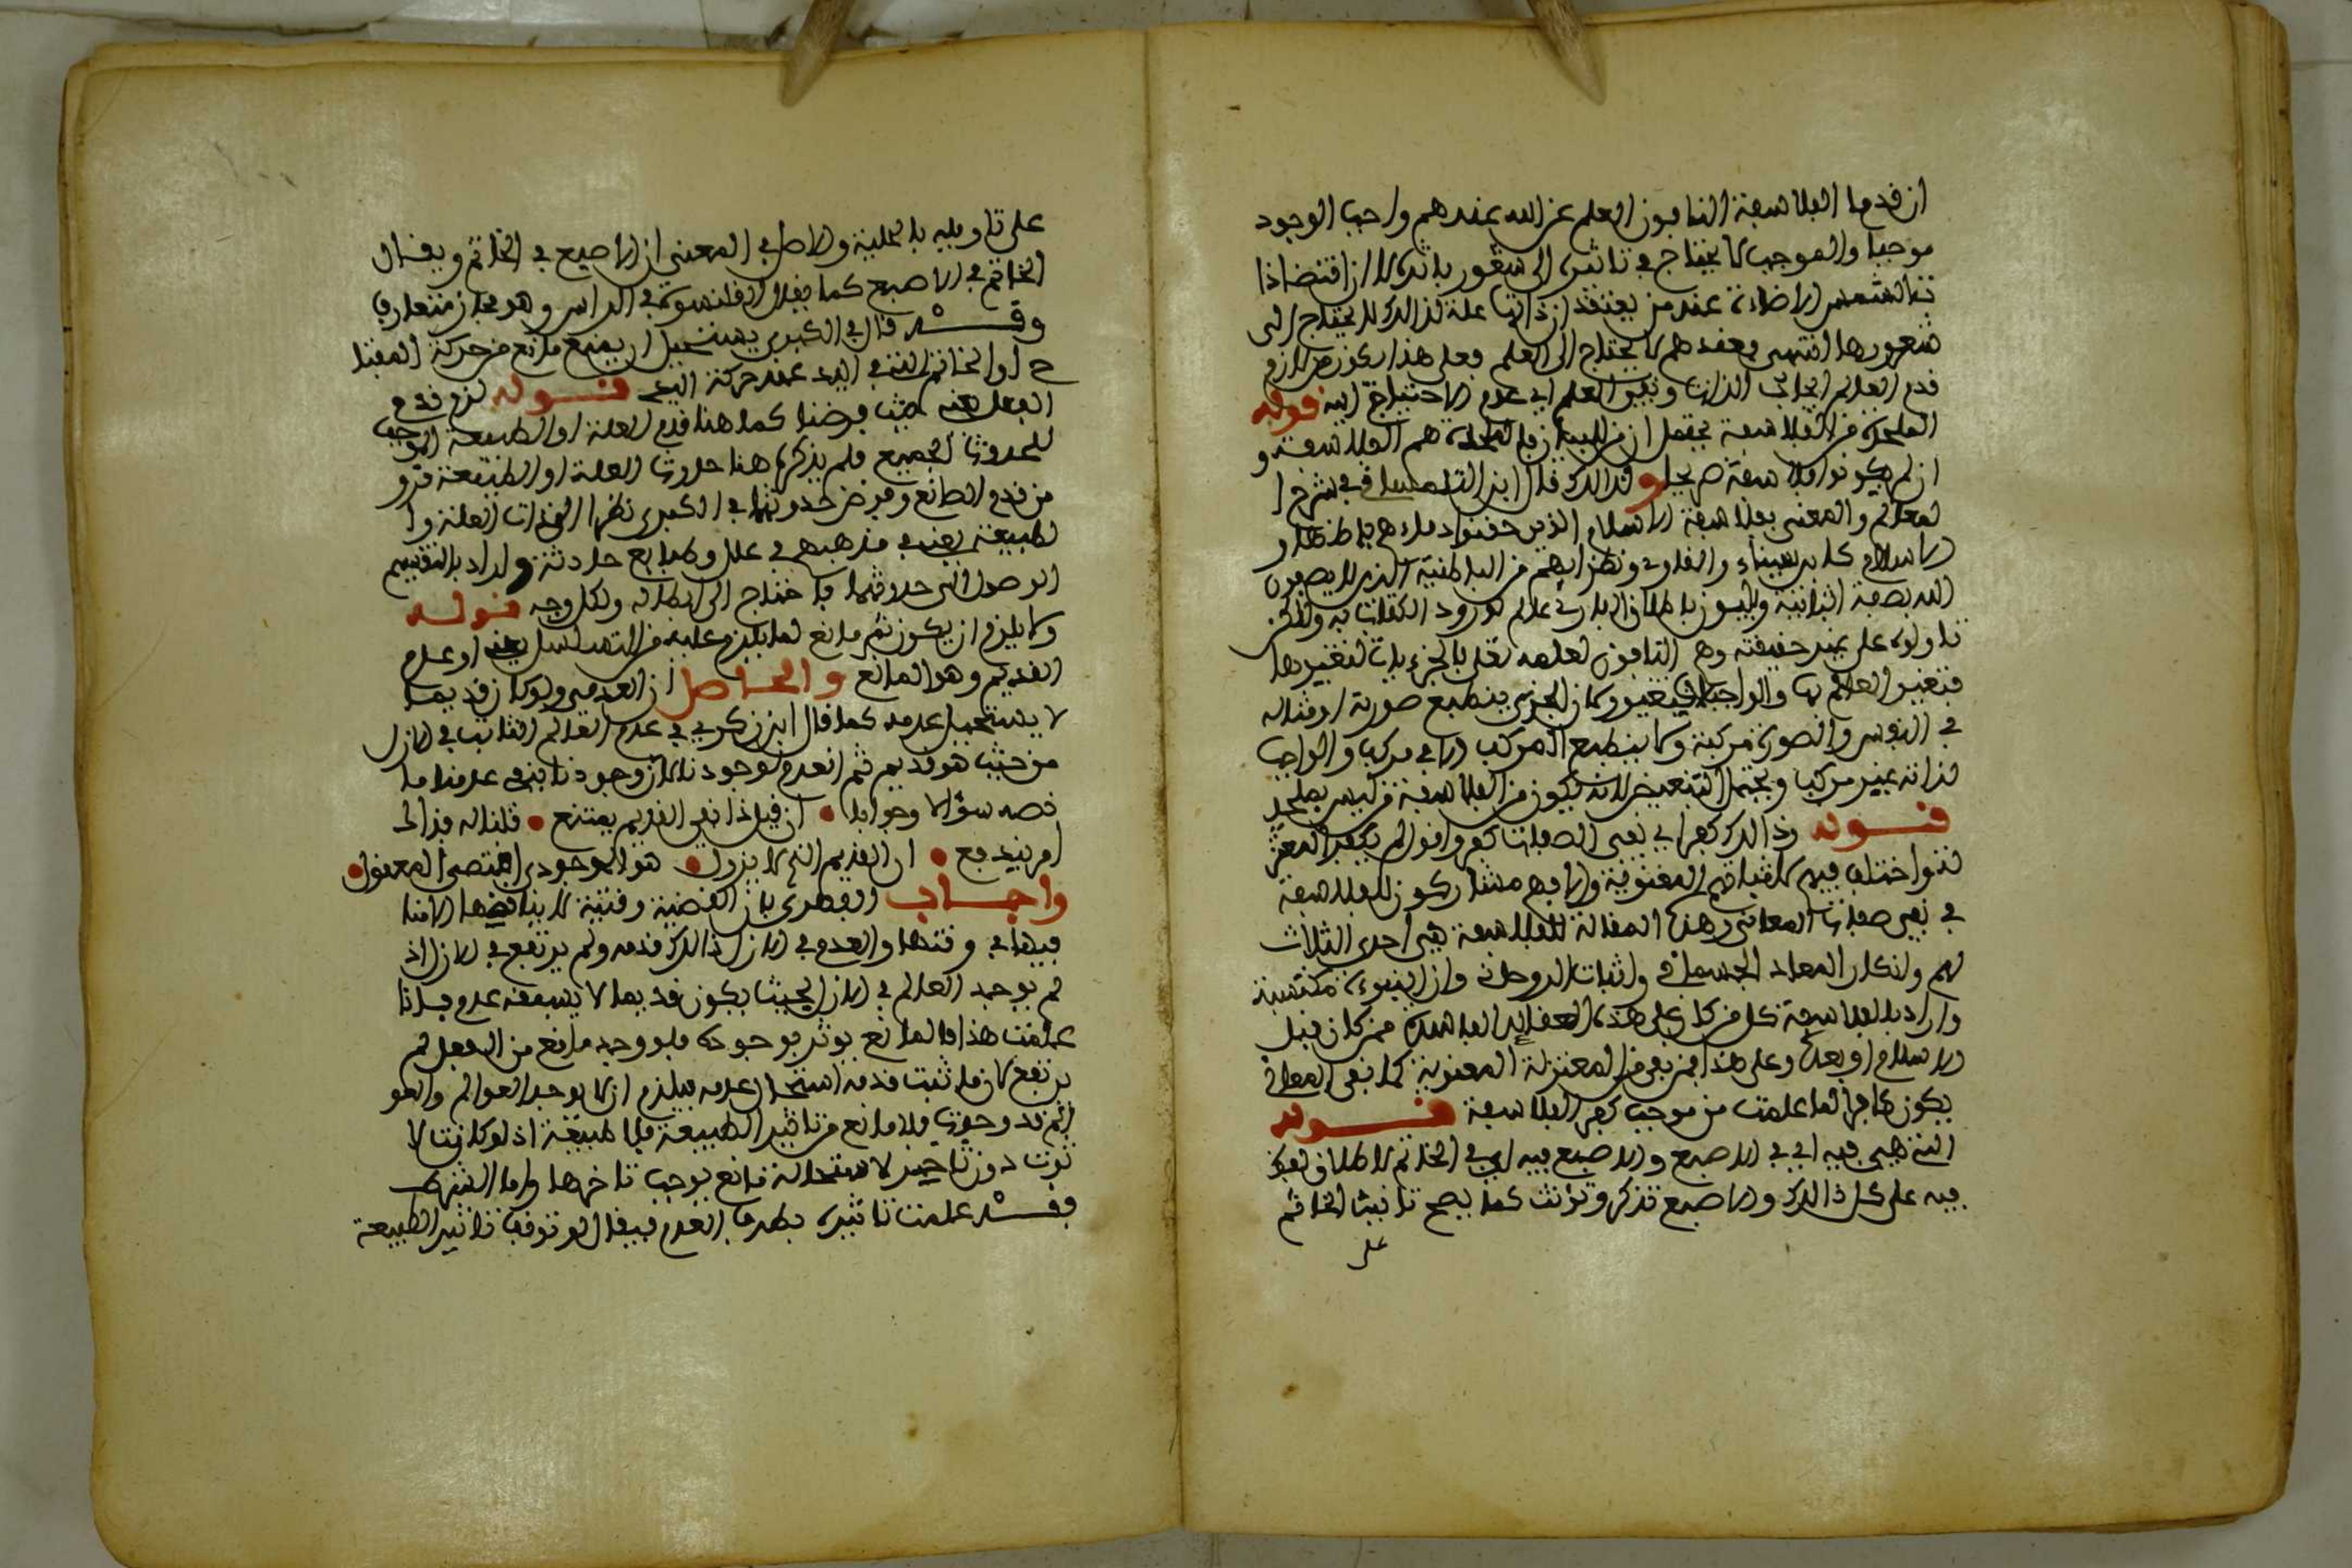 ان قدماء الفلاسفة النافون العلم عن الله عندهم واجب الوجود
موجبا والموجب لا يحتاج في تاثيره الى شعور باثره الا ان اقتضاء ذا
ت الشمس الاضاءة عند من يعتقد ان ذاتها علة لذالك لا يحتاج الى
شعورها انتهى فعندهم لا يحتاج الى العلم فعلى هذا يكون من لازم
قدم العالم ايجاب الذات ونفي العلم اي عدم الاحتياج اليه قوله
الملحدة من الفلاسفة يحتمل ان من للبيان فالملحدة هم الفلاسفة و
ان لم يكونوا فلاسفة صريحا ولذالك قال ابن التلمساني في شرح ا
لمعالم والمعنى بفلاسفة الاسلام الذين حفنوا دماءهم باظهار
الاسلام كابن سيناء والفارابي ونظرائهم من الباطنية الذين لا يصفون
الله بصفة اثباتية ويلبسون باطلاق البارئ عالم لورود الكتاب به ولاكن
تاولوه على غير حقيقته وهم النافون لعلمه تعلى بالجزءيات لتغيرها
فتغير العلم بها والواجب لا يتغير وكان الجزءي ينطبع صورته او مثاله
في النفوس والصورة مركبة ولا ينطبع المركب الا في مركب والواجب
لذاته غير مركب ويحتمل التبعيض لانه يكون من الفلاسفة من ليس بملحد
قوله وذالك كفر اي نفي الصفات كفر واقوالهم بكفر المعتز
لة واختلف فيهم لاثباتهم المعنوية والا فهم مشاركون للفلاسفة
في نفي صفات المعاني وهذه المقالة للفلاسفة هي احدى الثلاث
لهم وانكار المعاد الجسماني واثبات الروحاني وان النبوة مكتسبة
واراد بالفلاسفة كل من كان على هذه العقائد الفاسدة ممن كان قبل
الاسلام او بعده وعلى هذا فمن نفى من المعتزلة المعنوية كما نفى المعاني
يكون كافرا لما علمت من موجب كفر الفلاسفة قوله
التي هي فيه اي في الاصبع والاصبع فيه اي في الخاتم لاطلاق لفظ
فيه على كل ذالك والاصبع تذكر وتؤنث كما يصح تانيث الخاتم
على
على تاويله بالحلية والاصل في المعنى ان الاصبع في الخاتم ويقال
الخاتم في الاصبع كما يقال القلنسوة في الراس وهو مجاز متعارف
وقد قال في الكبرى يستحيل ان يمنع مانع من حركة المفتا
ح او الخاتم التي في اليد عند حركة اليد قوله لزم قدم
الفعل حيث فرضنا كما هنا قدم العلة او الطبيعة الموجب
للحدوث الجميع فلم يذكر هنا حدوث العلة او الطبيعة فرو
من قدم الصانع وفرض حدوثهما في الكبرى نظرا الى ذات العلة وا
لطبيعة يعني في مذهبهم في علل وطبايع حادثة واراد بالتقسيم
الوصول الى حدوثهما فاحتاج الى ابطاله ولكل وجه قوله
ولا يلزم ان يكون ثم مانع لما يلزم عليه من التسلسل او عدم
القديم وهو المانع والحاصل ان العدمي ولو كان قديما
لا يستحيل عدمه كما قال ابن زكري في عدم العالم الثابت في الازل
من حيث هو قديم ثم انعدم لوجودنا لان وجودنا ينفي عدمنا ما
نصه سؤالا وجوابا • ان قيل ذا نفي القديم يمتنع • قلنا له فزال
امر يندفع • ان القديم الذي لا يزول • هو الوجودي المقتضى المعقول •
واجاب الفطري بان القضية وقتية لا يناقضها الامنا
فيها في وقتها والعدم في الازل ذالك قدمه ولم يرتفع في الازل اذ
لم يوجد العالم في الازل بحيث يكون قديما لا يسبقه عدم فاذا
علمت هذا فالمانع يوثر بوجوده فلو وجد مانع من الفعل لم
يرتفع لان ما ثبت قدمه استحال عدمه فيلزم ان لا يوجد العوالم والعو
الم قد وجدت فلا مانع من تاثير الطبيعة فلا طبيعة اذ لو كانت لا
ثرت دون تاخير لاستحالة مانع يوجب تاخرها واما الشرط
فقد علمت تاثيره بطرف العدم فيقال لو توقف تاثير الطبيعة